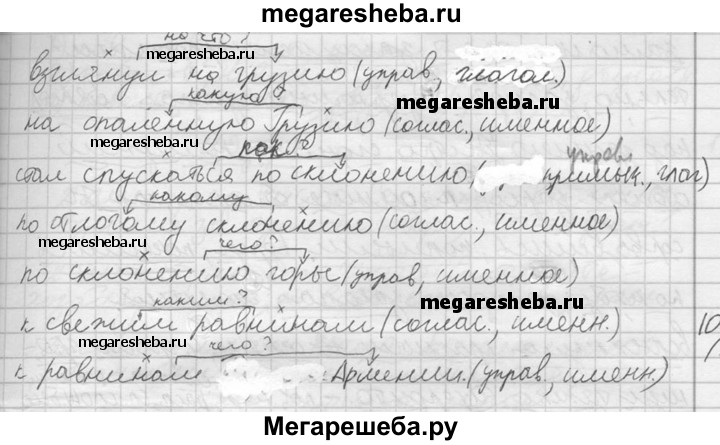 megaresheba.ru
на что?
megaresheba.ru
взглянул на грузию (управ, глагол.)
какую?
megaresheba.ru
на опалённую Грузию (соглас., именное)
megaresheba.ru
как?
управл
стал спускаться по склонению, примык., глаг)
какому
по отлогому склонению (соглас., именное)
megaresheba.ru
чего?
по склонению горы (управ, именное)
каким?
megaresheba.ru
к свежим равнинам (соглас., именн.)
10
megaresheba.ru
чего?
к равнинам Армении. (управ, именн.)
Мегарешеба.ру